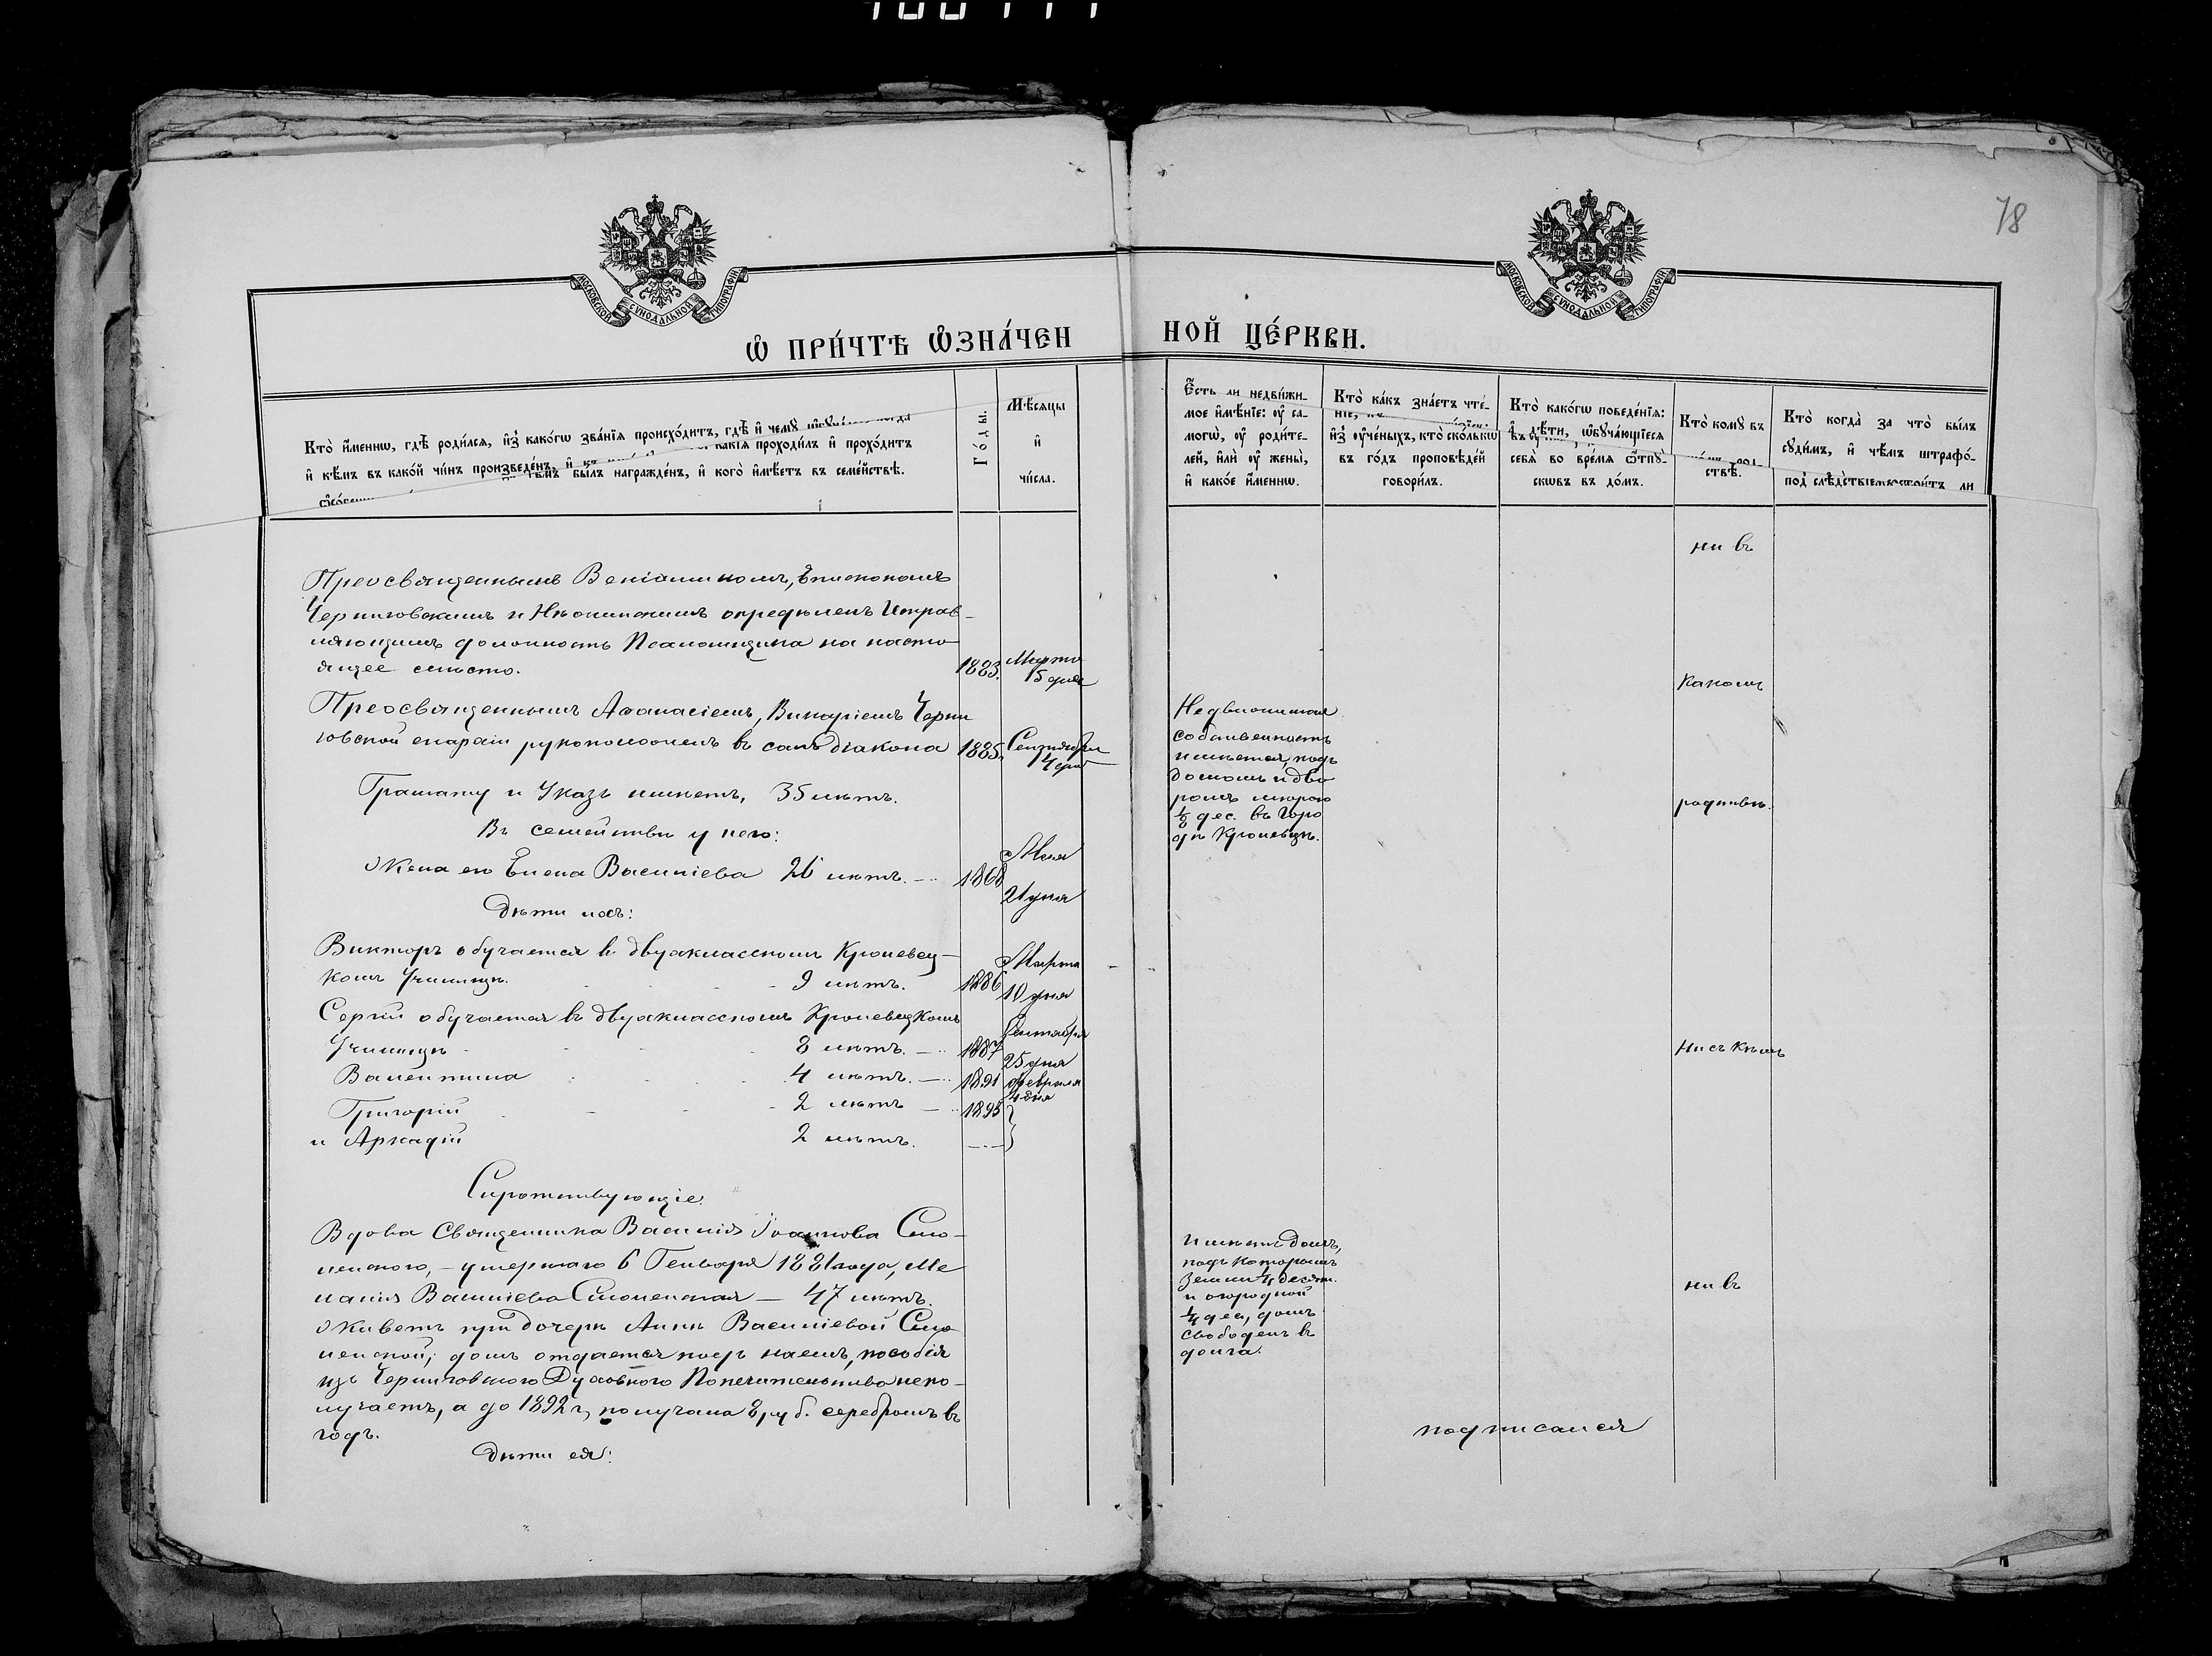 78
МОСКОВСКОЙ СѴНОДАЛЬНОЙ ТИПОГРАФІИ
МОСКОВСКОЙ СѴНОДАЛЬНОЙ ТИПОГРАФІИ
Ѡ ПРИ́ЧТѢ ѠЗНА́ЧЕН
НОЙ ЦЕ́РКВИ.
Кто̀ и҆́менно, гдѣ̀ роди́лсѧ, и҆з̾ како́гѡ зва́нїѧ происхо́дитъ, гдѣ̀ и҆ чемꙋ̀
какїѧ проходи́лъ и҆ прохо́дитъ
и҆ кѣ́мъ въ како́й чи́нъ произведе́нъ, и҆
бы́лъ награжде́нъ, и҆ кого̀ и҆мѣ́етъ въ семе́йствѣ.
Го́ды.
Мѣ́сѧцы
и҆
чи́сла.
Є҆́сть ли недви́жи-
мое и҆мѣ́нїе: ᲂу҆ са-
могѡ̀, ᲂу҆ роди́те-
лей, и҆лѝ ᲂу҆ жены̀,
и҆ како́е и҆́меннѡ.
Кто̀ ка́къ зна́етъ чте́-
нїе,
и҆з̾ ᲂу҆че́ныхъ, кто̀ ско́лькѡ
въ го́дъ проповѣ́дей
говори́лъ.
Кто̀ како́гѡ поведе́нїѧ:
и҆ дѣ́ти, ѡ҆бꙋча́ющїесѧ
себѧ̀ во вре́мѧ ѿпꙋ-
скѡвъ въ до́мъ.
Кто̀ комꙋ̀ въ
ствѣ̀.
Кто̀ когда̀ за что̀ бы́лъ
сꙋди́мъ, и҆ чѣ́мъ штрафо́-
под̾ слѣ́дствїемъ
ли
Преосвященнымъ Веніаминомъ, Епископомъ
Черниговскимъ и Нѣжинскимъ опредѣленъ Исправ-
ляющимъ должность Псаломщика на насто-
ящее мѣсто.
1883.
Марта
15 дня
Преосвященнымъ Аѳанасіемъ, Викаріемъ Черни
говской епархіи рукоположенъ въ санъ діакона
1885.
Сентября
14 дня
Грамату и Указъ имѣетъ, 35 лѣтъ.
Въ семействѣ у него:
Жена его Елена Васильева 26 лѣтъ.
1868
Мая
21 дня
Дѣти ихъ:
Викторъ обучается въ двухклассномъ Кролевец-
комъ Училищѣ. 9 лѣтъ.
1886
Марта
10 дня
Сергій обучается въ двухклассномъ Кролевецкомъ
Училищѣ 8 лѣтъ.
1887
Сентября
25 дня
Валентина 4 лѣтъ.
1891
Февраля
4 дня
Григорій 2 лѣтъ
1895
и Аркадій 2 лѣтъ.
Сиротствующіе.
Вдова Священника Василія Іоаннова Смо-
ленского, – умершаго 6 Генваря 1881 года, Ме
ланія Васильева Смоленская – 47 лѣтъ.
Живетъ при дочери Аннѣ Васильевой Смо
ленской; домъ отдается подъ наемъ, пособія
изъ Черниговского Духовного Попечительства непо-
лучаетъ, а до 1892 г, получала 8 руб. серебромъ въ
годъ.
Дѣти ея:
Недвижимая
собственность
имѣется, подъ
домомъ и дво
ромъ мѣрою
1/8 дес. въ горо
дѣ Кролевцѣ.
Имѣетъ домъ,
подъ которымъ
земли 1/4 десят.
и огородной
1/4 дес, домъ
свободенъ въ
долга.
ни въ
какомъ
родствѣ.
ни съ кѣмъ
ни въ
подписался